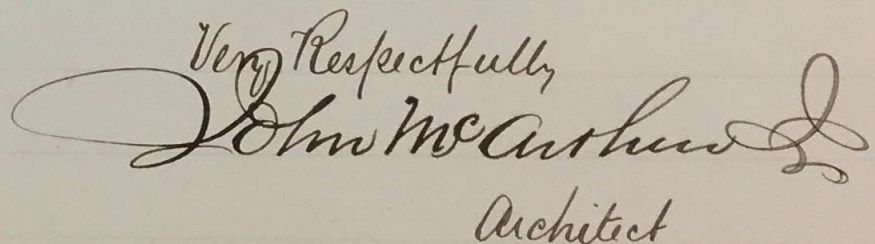 Very Respectfully
John McArthur Jr
Architect